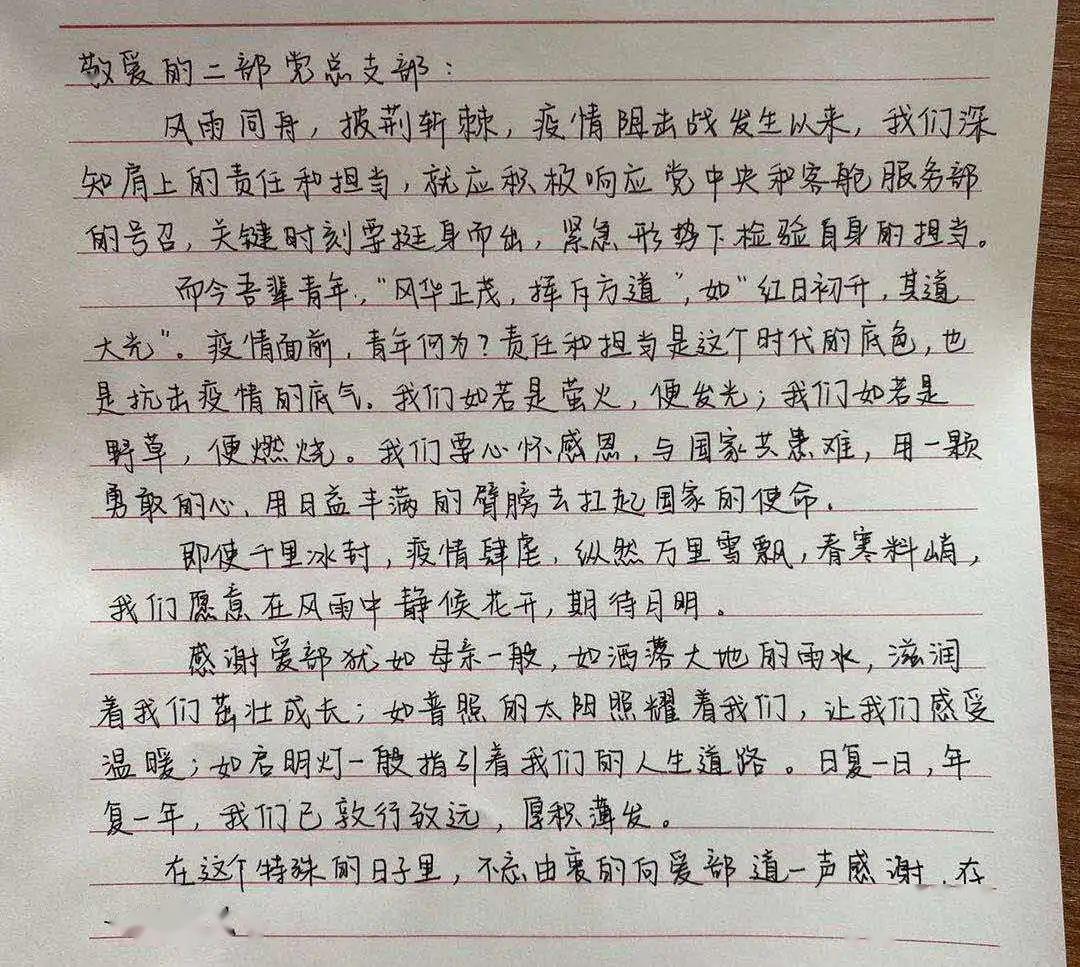 敬爱的二部党总支部：
风雨同舟，披荆斩棘，疫情阻击战发生以来，我们深
知肩上的责任和担当，就应积极响应党中央和客舱服务部
的号召，关键时刻要挺身而出，紧急形势下检验自身的担当。
而今吾辈青年，“风华正茂，挥斥方道”，如“红日初升，其道
大光”。疫情面前，青年何为？责任和担当是这个时代的底色，也
是抗击疫情的底气。我们如若是萤火，便发光；我们如若是
野草，便燃烧。我们要心怀感恩，与国家共患难，用一颗
勇敢的心，用日益丰满的臂膀去扛起国家的使命。
即使千里冰封，疫情肆虐，纵然万里雪飘，春寒料峭，
我们愿意在风雨中静候花开，期待月明。
感谢爱部犹如母亲一般，如洒落大地的雨水，滋润
着我们茁壮成长；如普照的太阳照耀着我们，让我们感受
温暖；如启明灯一般指引着我们的人生道路。日复一日，年
复一年，我们已敦行致远，厚积薄发。
在这个特殊的日子里，不忘由衷的向爱部道一声感谢，在